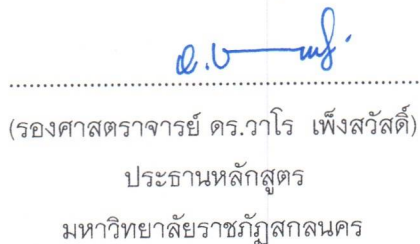 (รองศาสตราจารย์ ดร.วาโร เพ็งสวัสดิ์)
ประธานหลักสูตร
มหาวิทยาลัยราชภัฏสกลนคร